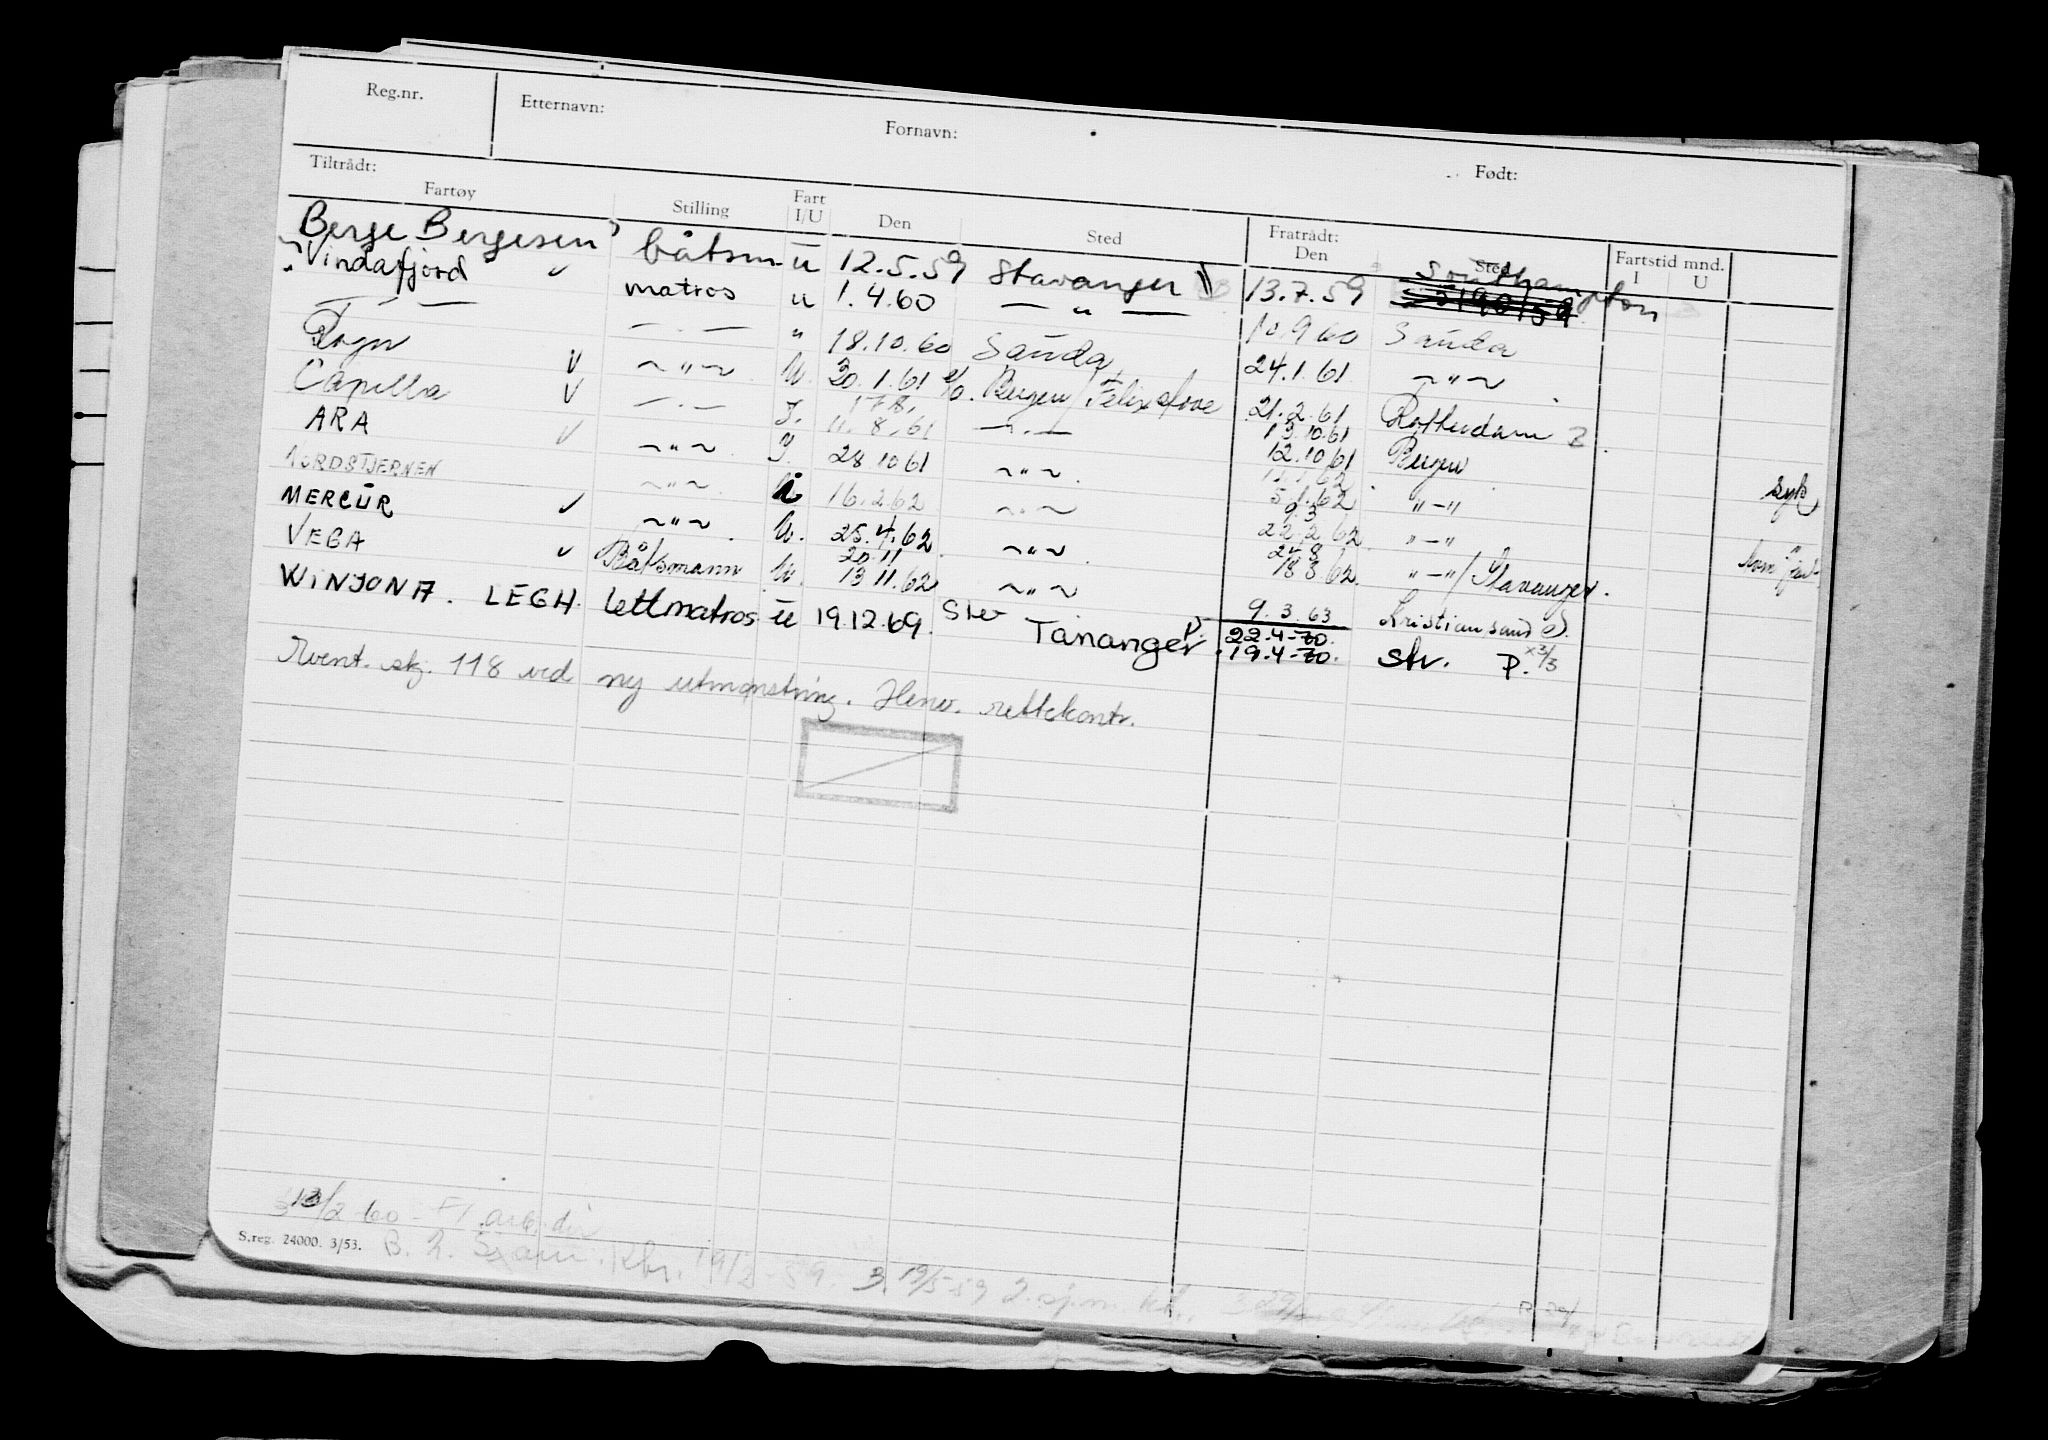 Reg.nr. Etternavn: Fornavn: Født:
Tiltrådt: Fratrådt:
Fartøy Stilling Fart I/U Den Sted Den Sted Fartstid mnd. I U
Berge Bergesen båtsm. u 12.5.59 Stavanger 13.7.59 Southampton
Vindafjord matros u 1.4.60 — " — 10.9.60 Sauda
— . — — . — " 18.10.60 Sauda 24.1.61 ~ " ~
Rogn ~ " ~ U. 30.1.61 Bergen / Felixstowe 21.2.61 Rotterdam
Capella — . — I. 17.8. 11.8.61 — . — 13.10.61 12.10.61 Bergen
ARA ~ " ~ I. 28 10 61 ~ " ~ 5.1.62 " — " syk
NORDSTJERNEN ~ " ~ 16.2.62 ~ " ~ 22.2.62 " — "
MERCUR ~ " ~ U. 25.4.62 ~ " ~ 24 8 18 8 62. " — " / Stavanger.
VEGA Båtsmann U. 20.11 13 11.62 ~ " ~ 9.3.63 Kristiansand S.
WINJONA. LEGH. lettmatros u 19.12.69. Stv Tananger 22.4-70. 19.4-70. Stv. P. x3/3
118 ved ny utmønstring. Henv. rettekontr.
13/2-60 - F/ arb.dir
S.reg. 24000. 3/53. 19/2-59. 3. 19/5-59